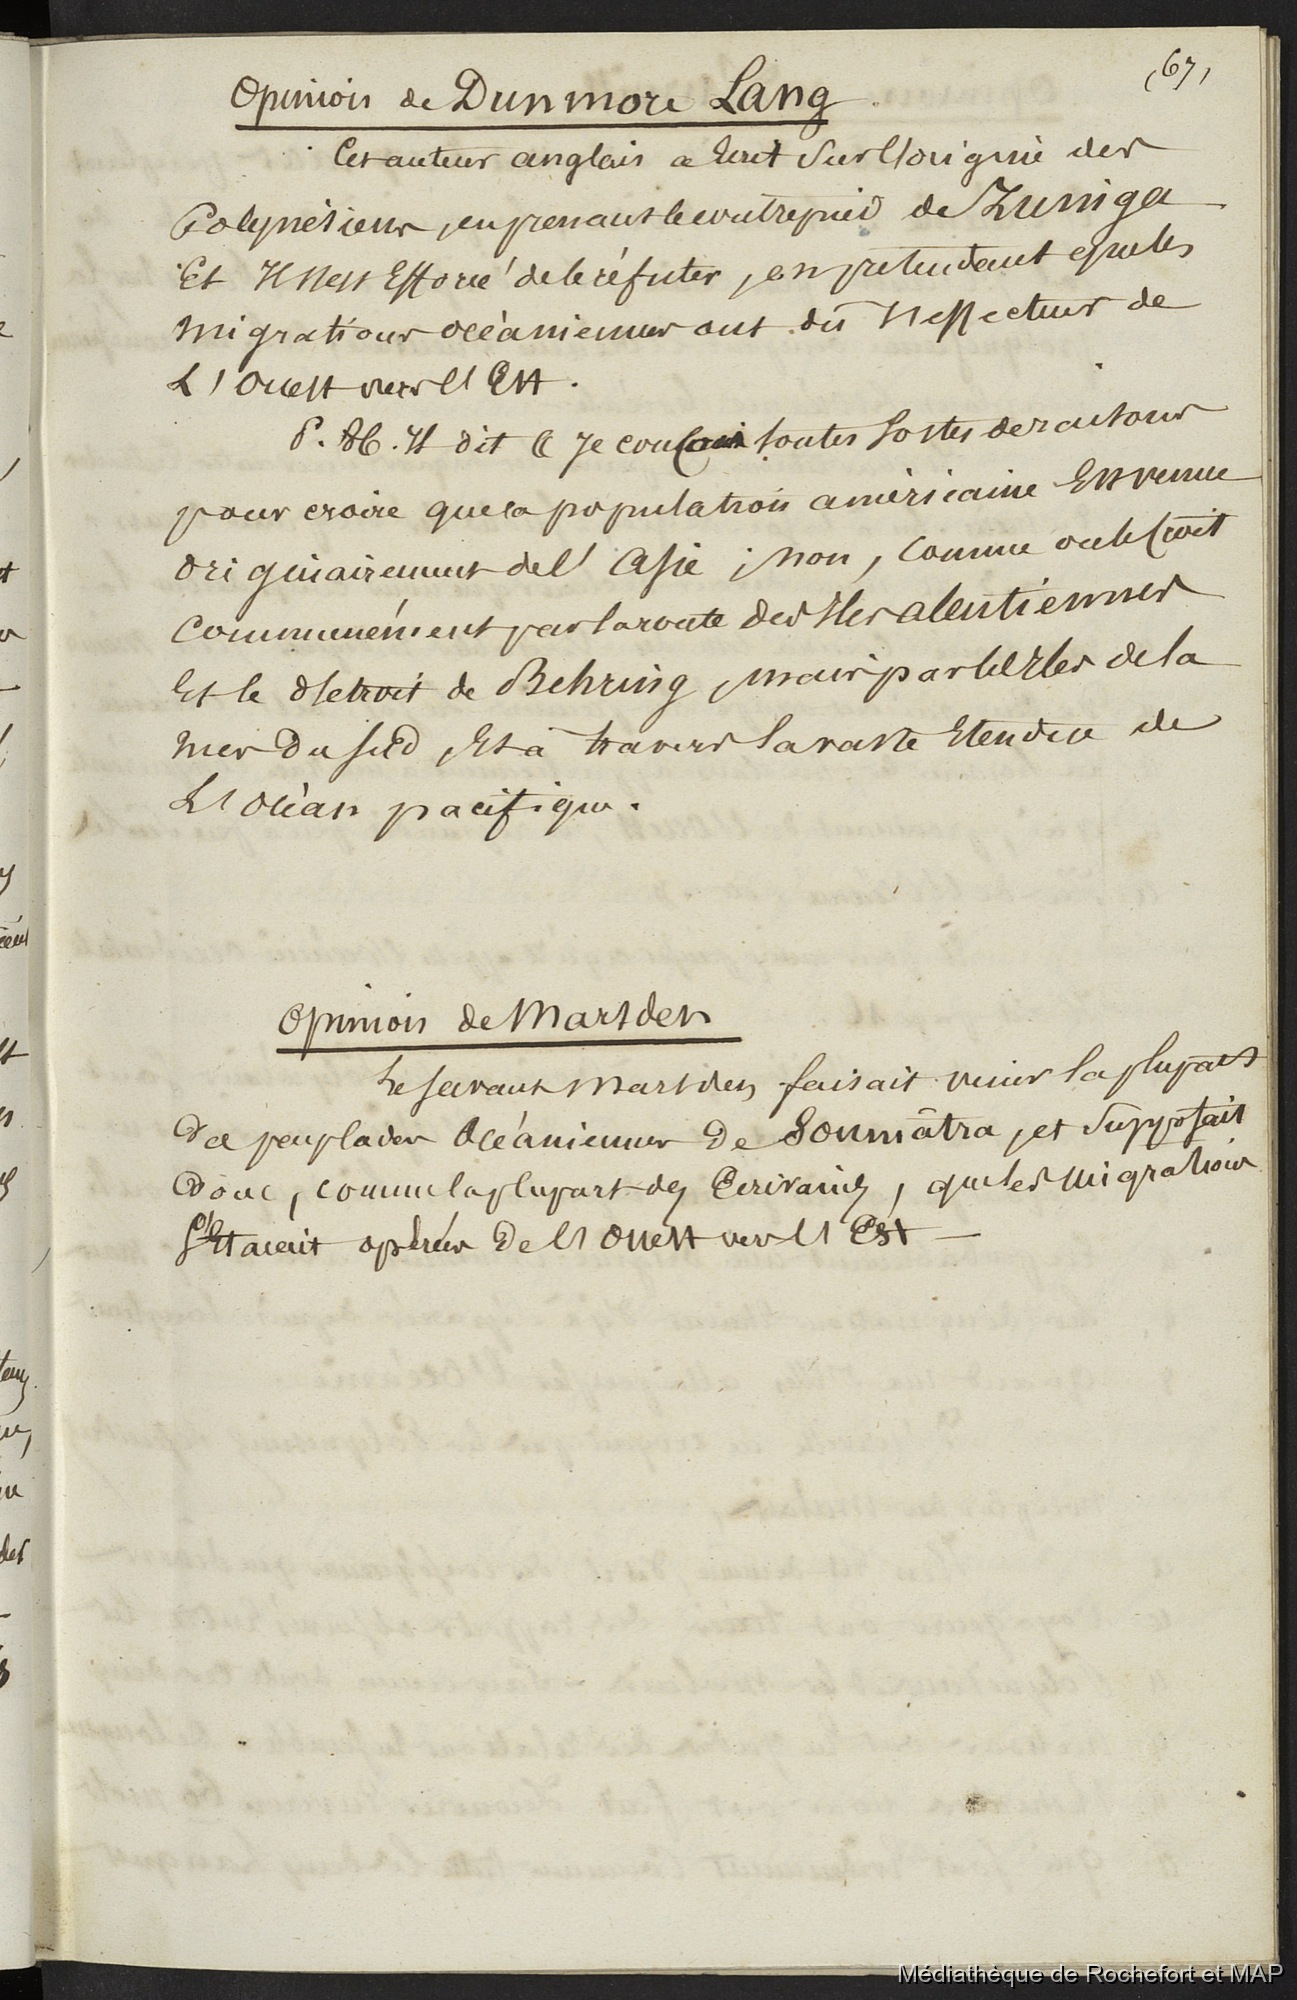 (67)
Opinion de Dunmore Lang
Cet auteur anglais a Ecrit sur l'origine des
Polynésiens, en prenant le contrepied de Zuniga
Et Il s'est Efforcé de le réfuter, en prétendant que les
migrations océaniennes ont dû s'effectuer de
L'Ouest vers l'Est.
P. 86. Il dit « Je conçois toutes sortes de raisons
pour croire que la population américaine Est venue
originairement de l'Asie ; non, comme on le croit
communément par la route des Iles aleutiennes
Et le détroit de Behring, mais par les Iles de la
mer du sud, Et à travers la vaste Etendue de
L'Océan pacifique.
Opinion de Marsden
Le savant Marsden faisait venir la plupart
Des peuplades Océaniennes De Soumâtra, et supposait
Donc, comme la plupart des Ecrivains, que les migrations
s'Etaient opérées De l'Ouest vers l'Est —
Médiathèque de Rochefort et MAP